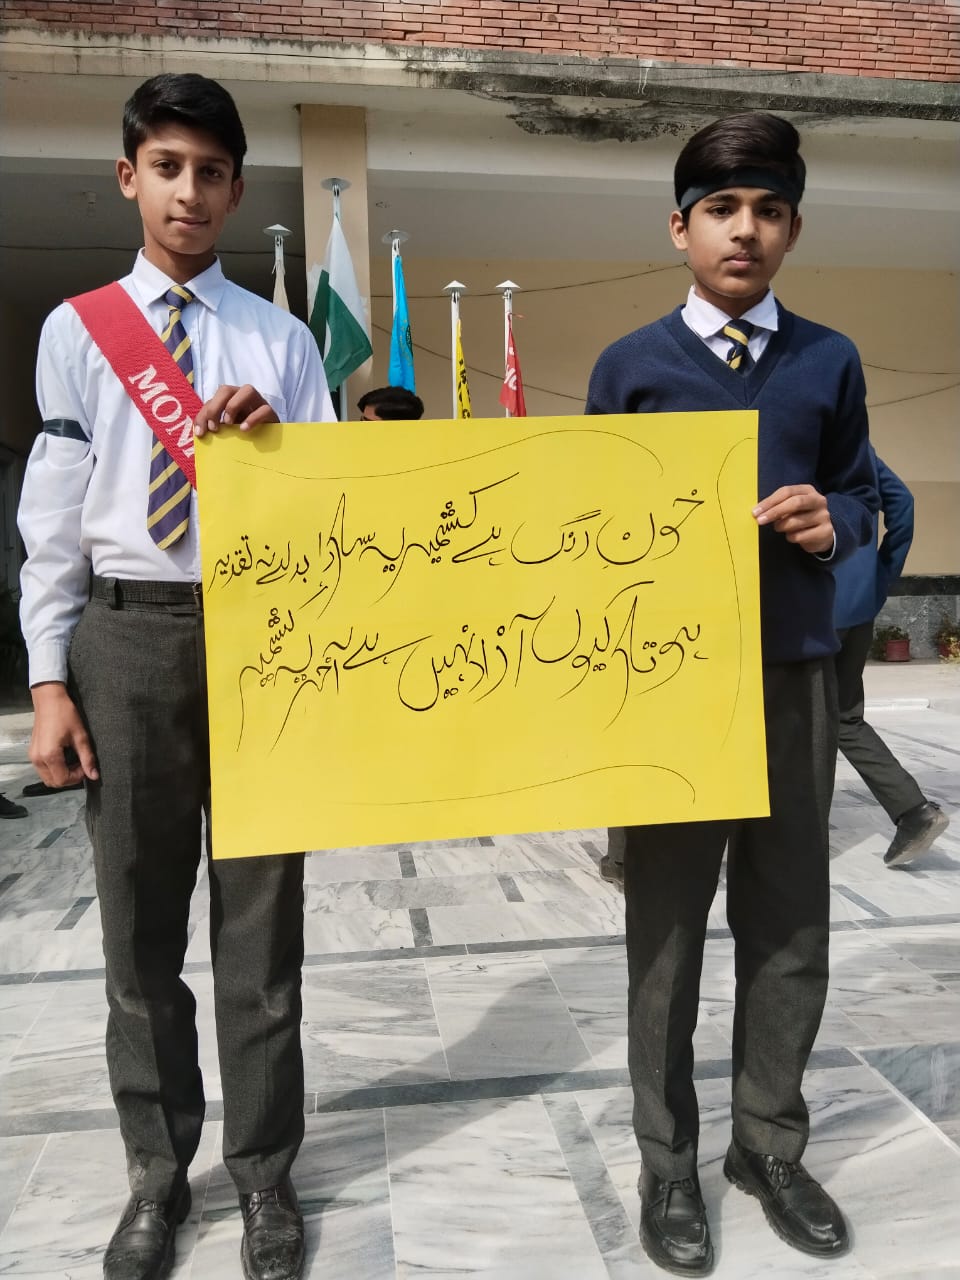 MON
خونِ رنگ ہے کشمیر یہ سارا بدلنے تقدیر
ہوتا کیوں آزاد نہیں ہے آخر یہ کشمیر